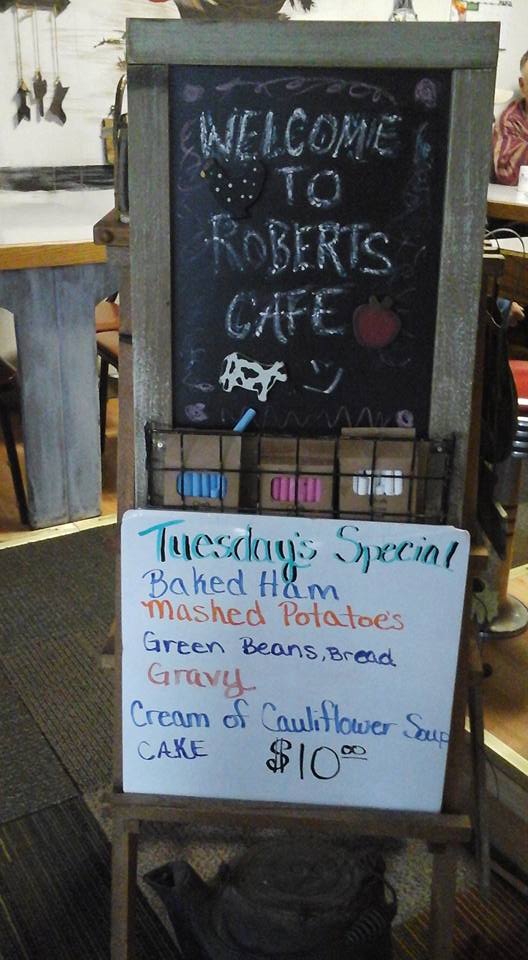 WELCOME
TO
ROBERTS
CAFE
Tuesday's Special
Baked Ham
mashed Potatoe's
Green Beans, Bread
Gravy
Cream of Cauliflower Soup
CAKE $10.00